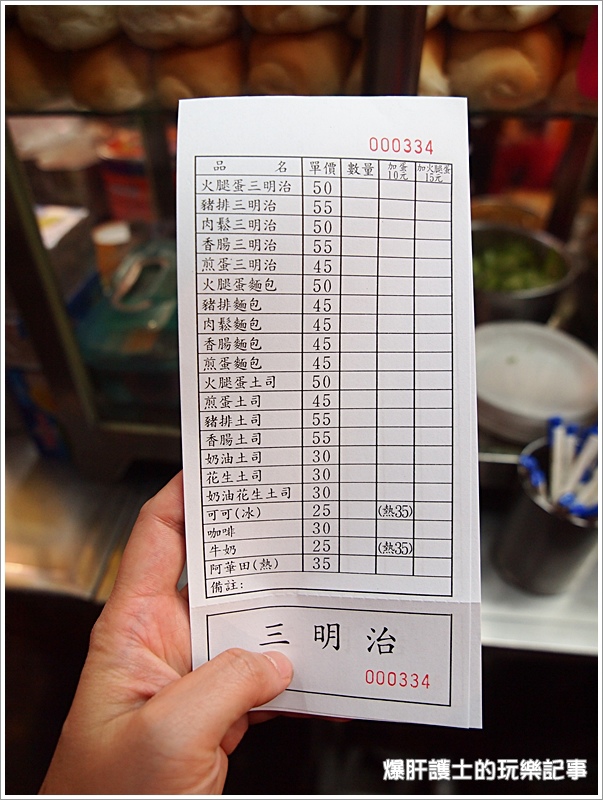 000334
品 名 單價 數量 加蛋10元 加火腿蛋15元
火腿蛋三明治 50
豬排三明治 55
肉鬆三明治 50
香腸三明治 55
煎蛋三明治 45
火腿蛋麵包 50
豬排麵包 45
肉鬆麵包 45
香腸麵包 45
煎蛋麵包 45
火腿蛋土司 50
煎蛋土司 45
豬排土司 55
香腸土司 55
奶油土司 30
花生土司 30
奶油花生土司 30
可可(冰) 25 (熱35)
咖啡 30
牛奶 25 (熱35)
阿華田(熱) 35
備註:
三明治
000334
爆肝護士的玩樂記事